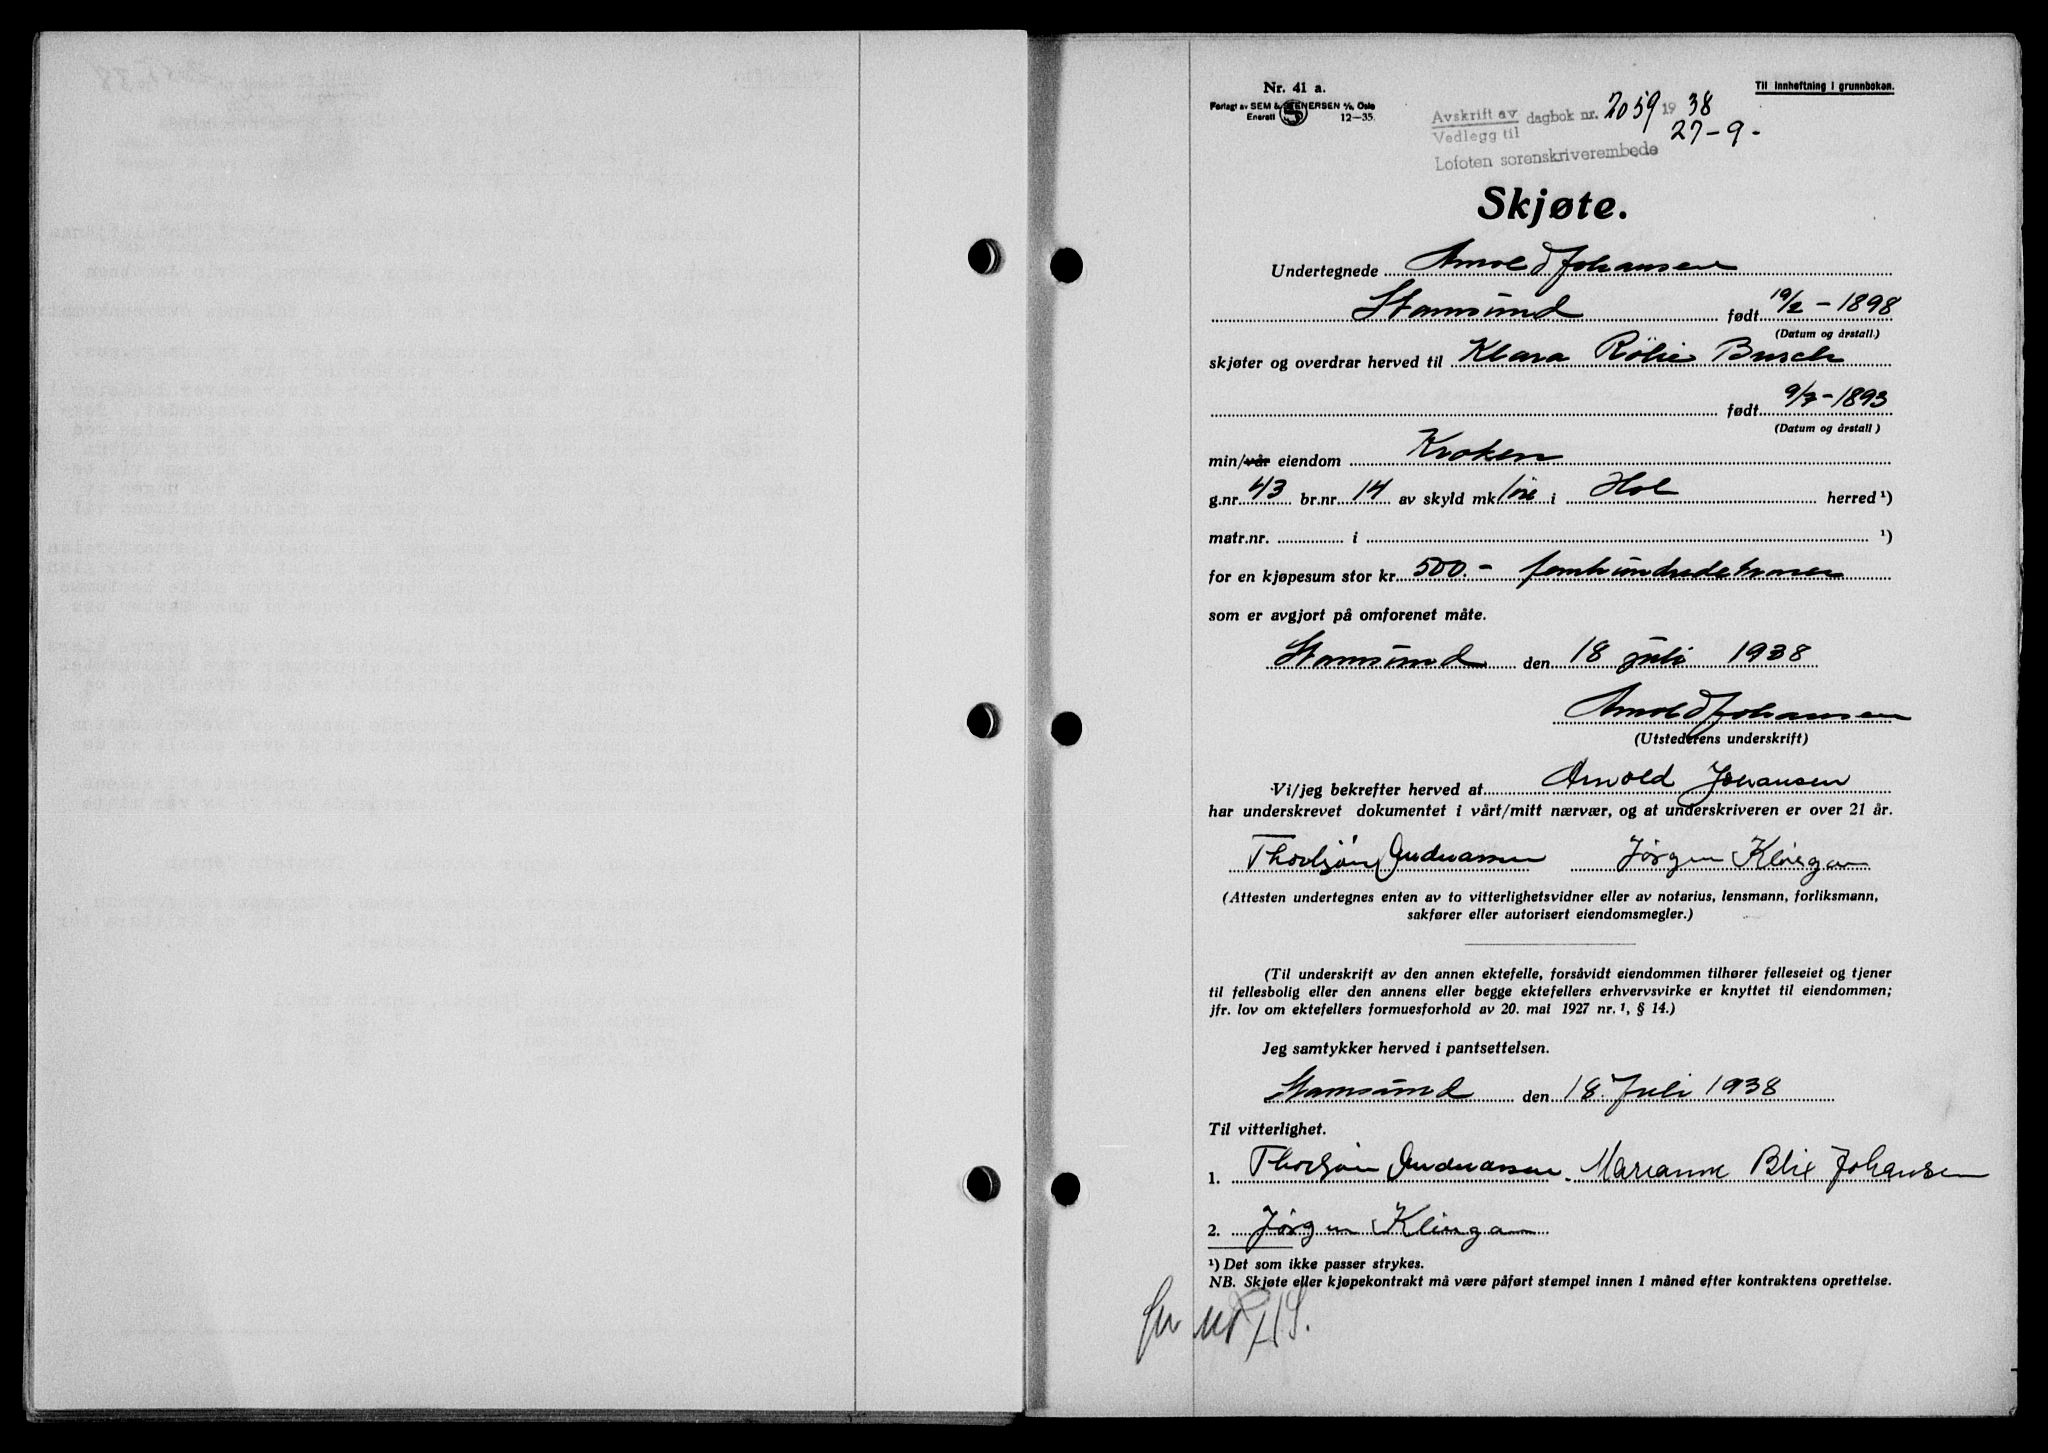 Nr. 41 a.
Forlagt av SEM & STENERSEN A/S, Oslo
Enerett 12—35.
Til innheftning i grunnboken.
Avskrift av
Vedlegg til
dagbok nr. 2059 1938
27-9-
Lofoten sorenskriverembede
Skjøte.
Undertegnede Arnold Johansen
Stamsund født 19/2 - 1898
(Datum og årstall.)
skjøter og overdrar herved til Klara Rölie Busch
født 9/7 - 1893
(Datum og årstall)
min/vår eiendom Kroken
g.nr. 43 br.nr. 14 av skyld mk 1 øre i Hol herred ¹)
matr.nr. i ¹)
for en kjøpesum stor kr. 500.- femhundredekroner
som er avgjort på omforenet måte.
Stamsund den 18 juli 1938
Arnold Johansen
(Utstederens underskrift)
Vi/jeg bekrefter herved at Arnold Johansen
har underskrevet dokumentet i vårt/mitt nærvær, og at underskriveren er over 21 år.
Jørgen Klinga
(Attesten undertegnes enten av to vitterlighetsvidner eller av notarius, lensmann, forliksmann,
sakfører eller autorisert eiendomsmegler.)
(Til underskrift av den annen ektefelle, forsåvidt eiendommen tilhører felleseiet og tjener
til fellesbolig eller den annens eller begge ektefellers erhvervsvirke er knyttet til eiendommen;
jfr. lov om ektefellers formuesforhold av 20. mai 1927 nr. 1, § 14.)
Jeg samtykker herved i pantsettelsen.
Stamsund den 18. Juli 1938
Til vitterlighet.
1. Marianne Blix Johansen
2. Jørgen Klinga
¹) Det som ikke passer strykes.
NB. Skjøte eller kjøpekontrakt må være påført stempel innen 1 måned efter kontraktens oprettelse.